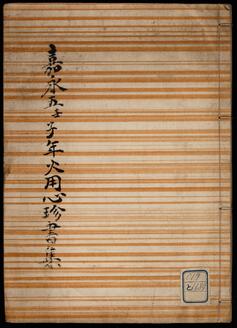 嘉永五壬子年火用心珍書集